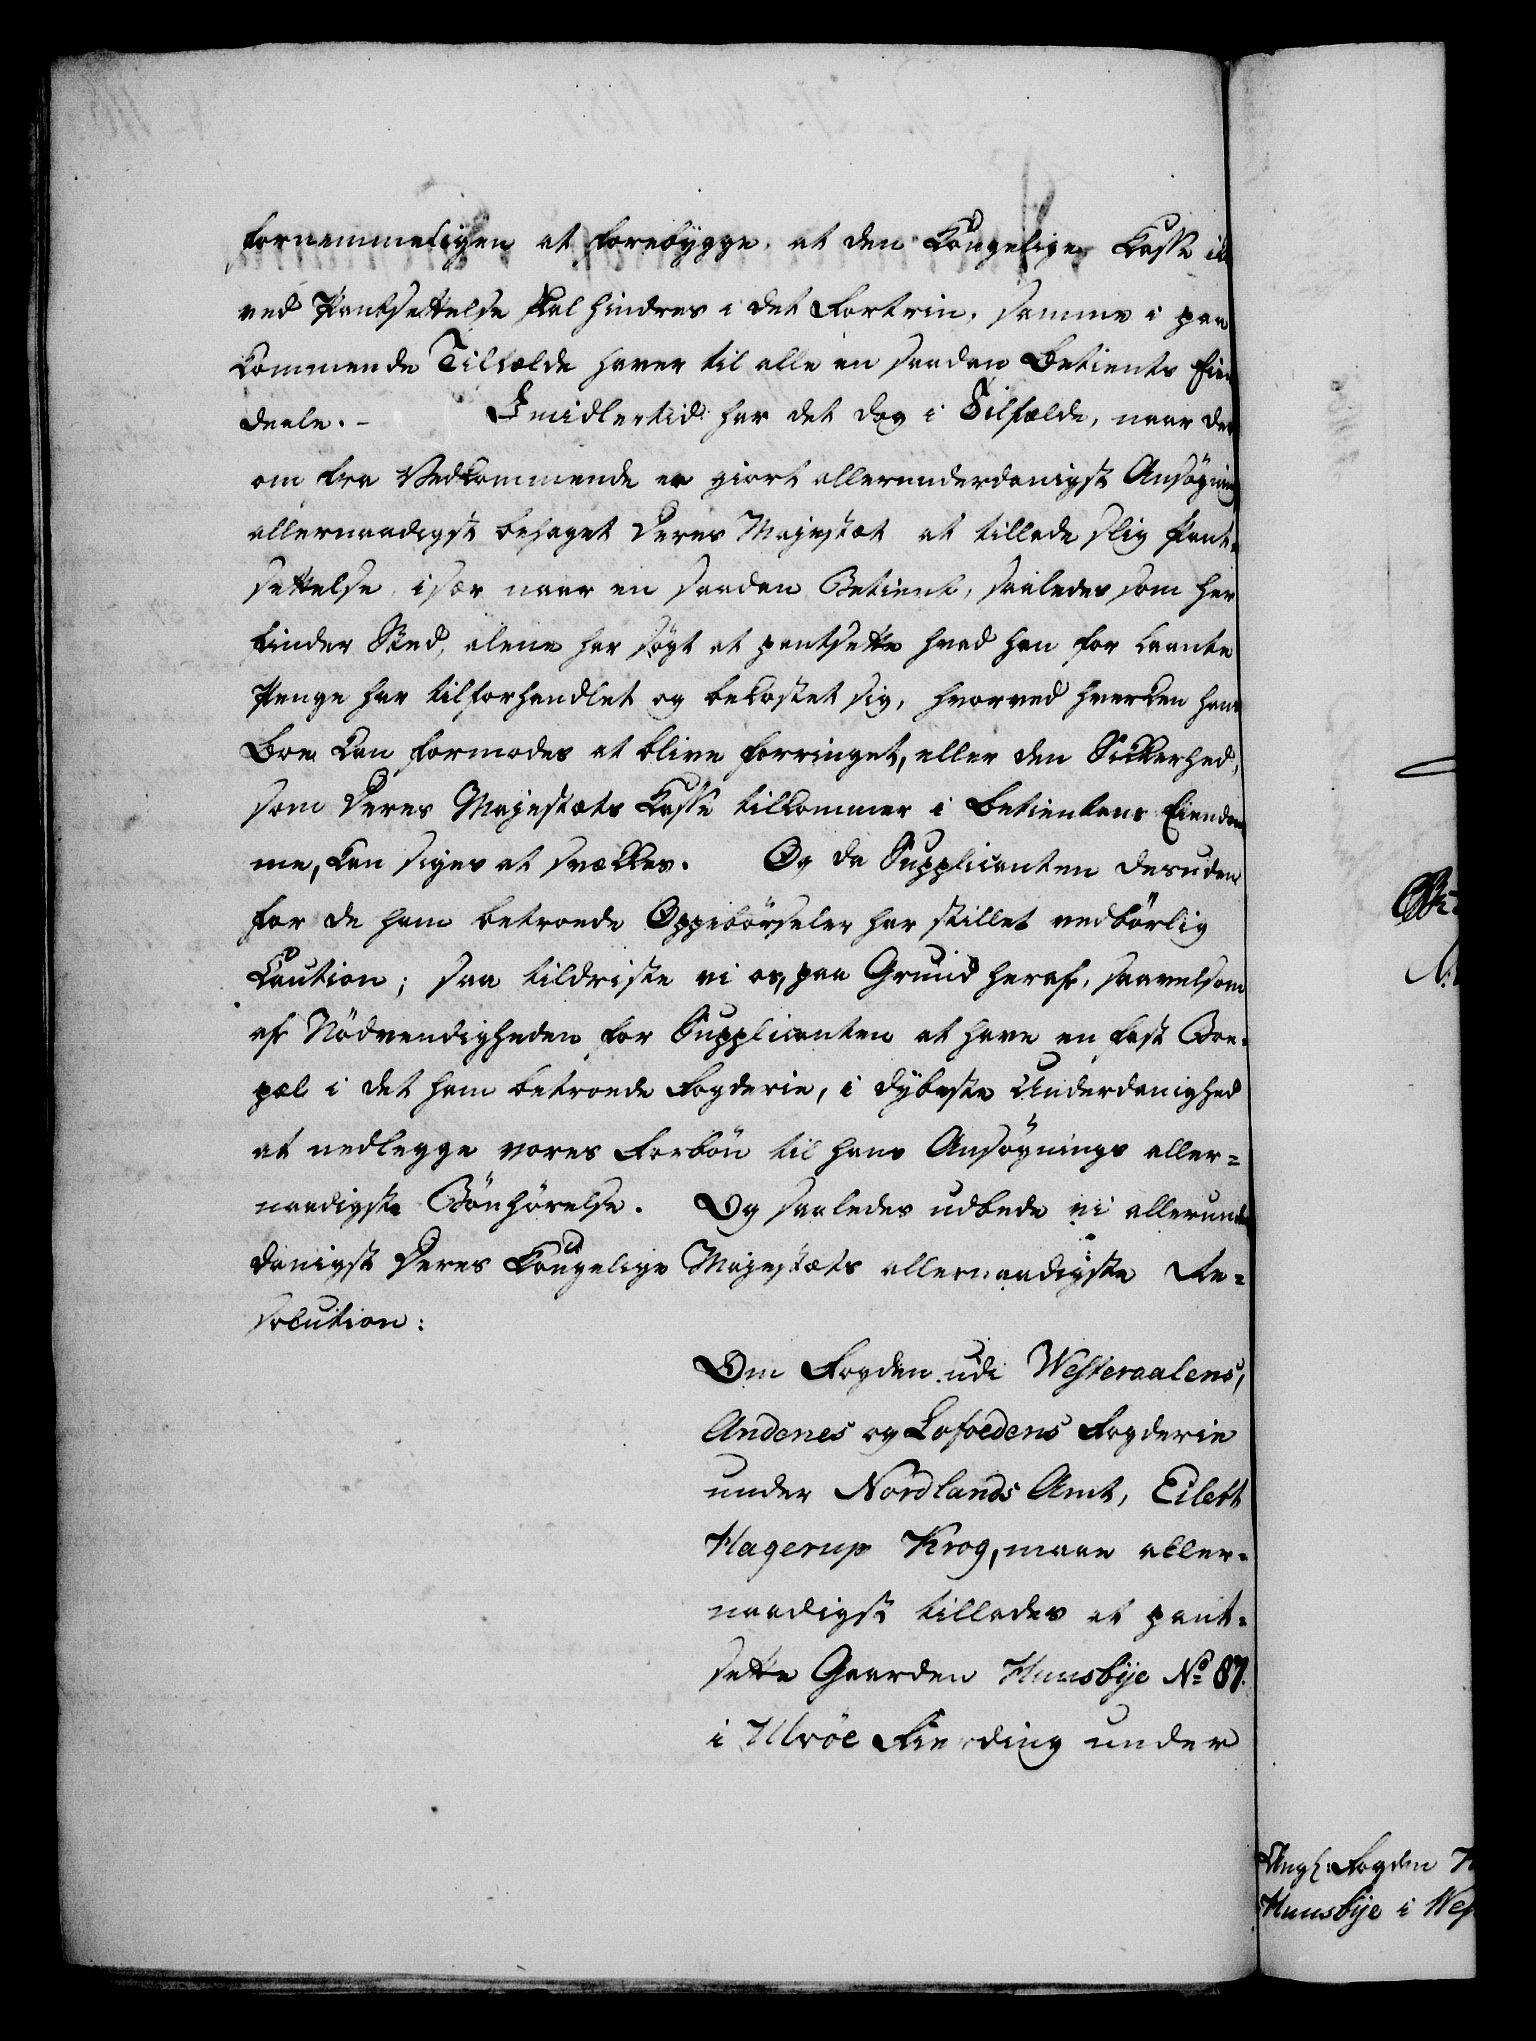 fornemmeligen at forebygge, at den Kongelige Kasse ik
ved Pantsættelse skal hindres i det Fortrin, samme i paa
kommende Tilfælde haver til alle en saadan Betients Eien
deele. - Imidlertid har det dog i Tilfælde, naar der
om fra Vedkommende er giort allerunderdanigst Ansøgning
allernaadigst behaget Deres Majestæt at tillade slig Pant-
settelse, især naar en saadan Betient, saaledes som her
finder Sted, alene har søgt at pantsette hvad han for laante
Penge har tilforhandlet og bekostet sig, hvorved hverken hans
Boe kan formodes at blive forringet, eller den Sikkerhed,
som Deres Majestæts Kasse tilkommer i Betientens Eiendom
me, kan siges at svækkes. Og da Supplicanten desuden
for de ham betroede Oppebørseler har stillet vedbørlig
Caution; saa tildriste vi os, paa Grund heraf, saavelsom
af Nödvendigheden for Supplicanten at have en fast Boe-
pæl i det ham betroede Fogderie, i dybeste Underdanighed
at nedlegge vores Forbön til hans Ansøgnings aller=
naadigste Bönhörelse. Og saaledes udbede vi allerunder
danigst Deres Kongelige Majestæts allernaadigste Re-
solution:
Om Fogden udi Westeraalens,
Andenes og Lofoedens Fogderie
under Nordlands Amt, Eilert
Hagerup Krog, maae aller-
naadigst tillades at pant-
sette Gaarden Huusbye No 87.
i Ulvöe Fierding under
Angl: Fogden
Huusbye i Wes